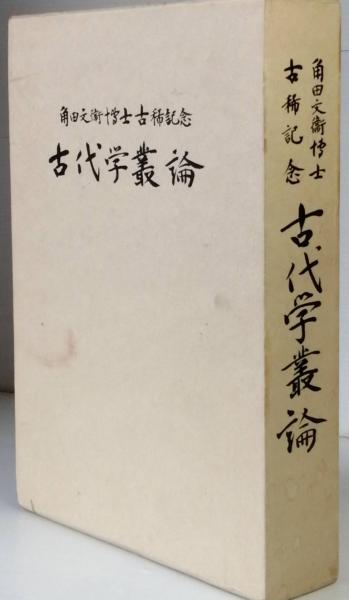 角田文衞博士古稀記念
古代学叢論
角田文衞博士
古稀記念
古代学叢論